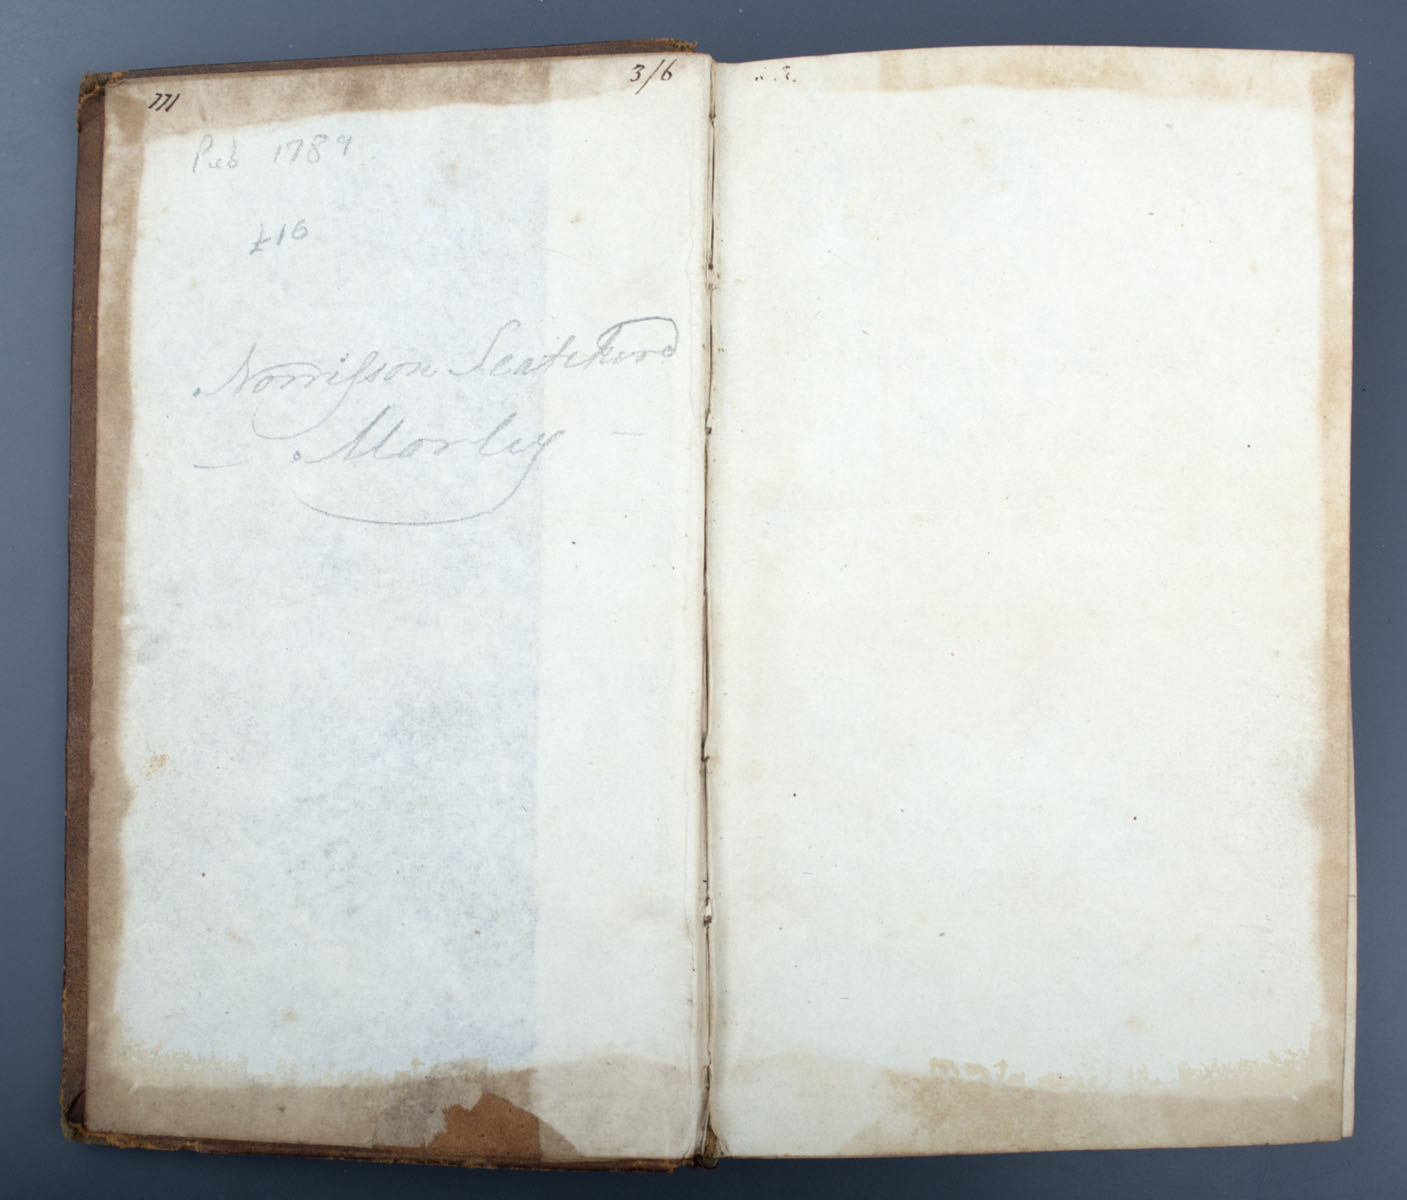 771
3/6
Pub 1789
£16
Norrisson Scatcherd
Morley